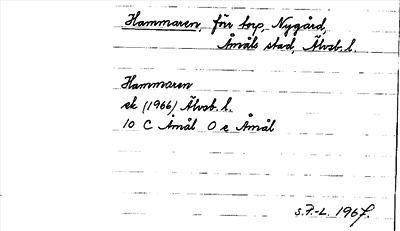 Hammaren, förr torp, Nygård,
Åmåls stad, Älvsb. l.
Hammaren
ek (1966) Älvsb. l.
10 C Åmål O e Åmål
S.F.-L. 1967.